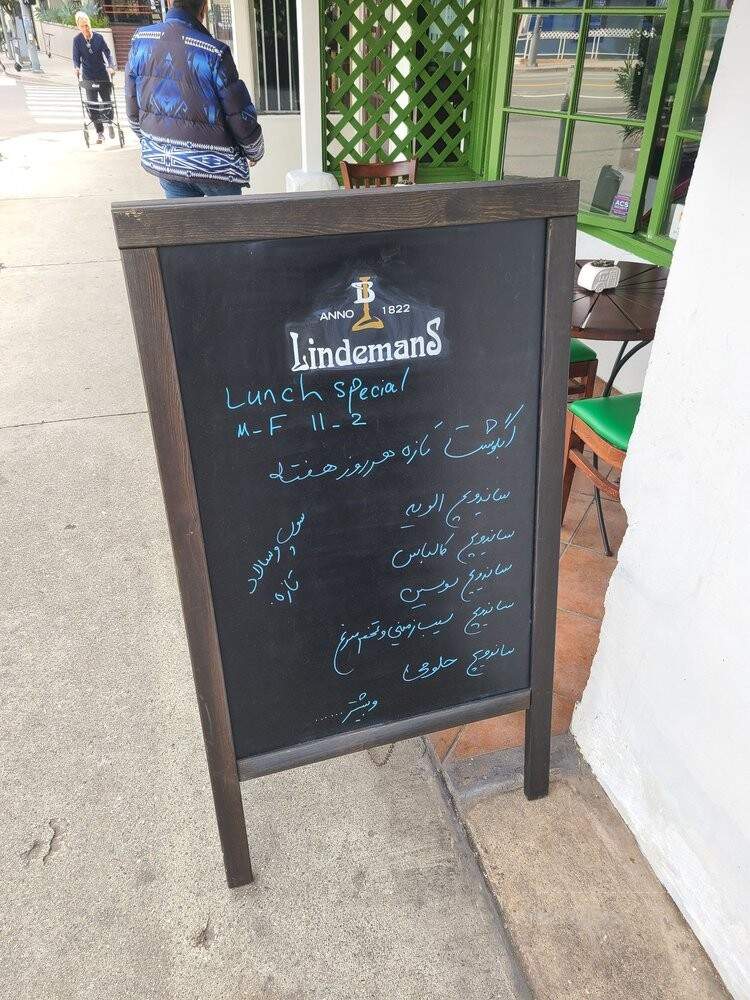 B
ANNO 1822
Lindemans
Lunch Special
M-F 11-2
آبگوشت تازه هر روز هفته
ساندویچ الویه
ساندویچ کالباس
ساندویچ سوسیس
ساندویچ سیب زمینی و تخم مرغ
ساندویچ
و بیشتر......
سوپ و سالاد
تازه
ACS